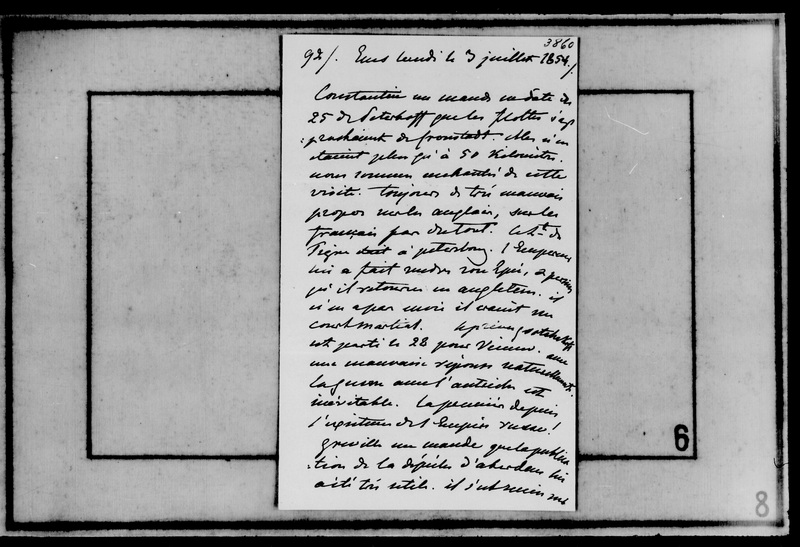 3860
92/. Ems lundi le 3 juillet 1854./
Constantin me mande en date du
25 de Peterhoff que les flottes s'ap
:prochaient de Cronstadt. elles n'en
étaient plus qu'à 50 Kilomètres.
nous sommes enchantés de cette
visite. toujours de très mauvais
propos sur les anglais, sur les
français pas du tout. le Lt. du
Tigre était à petersbourg. l'Empereur
lui a fait rendre son Epée, & permis
qu'il retourne en angleterre. il
n'en a pas envie il craint un
court martial. le prince gortchakoff
est parti le 28 pour Vienne. avec
une mauvaise réponse naturellement.
la guerre avec l'autriche est
inévitable. la première depuis
l'existence de l'Empire russe!
greville me mande que la publica
:tion de la dépêche d'aberdeen lui
a été très utile. il s'est
6
8